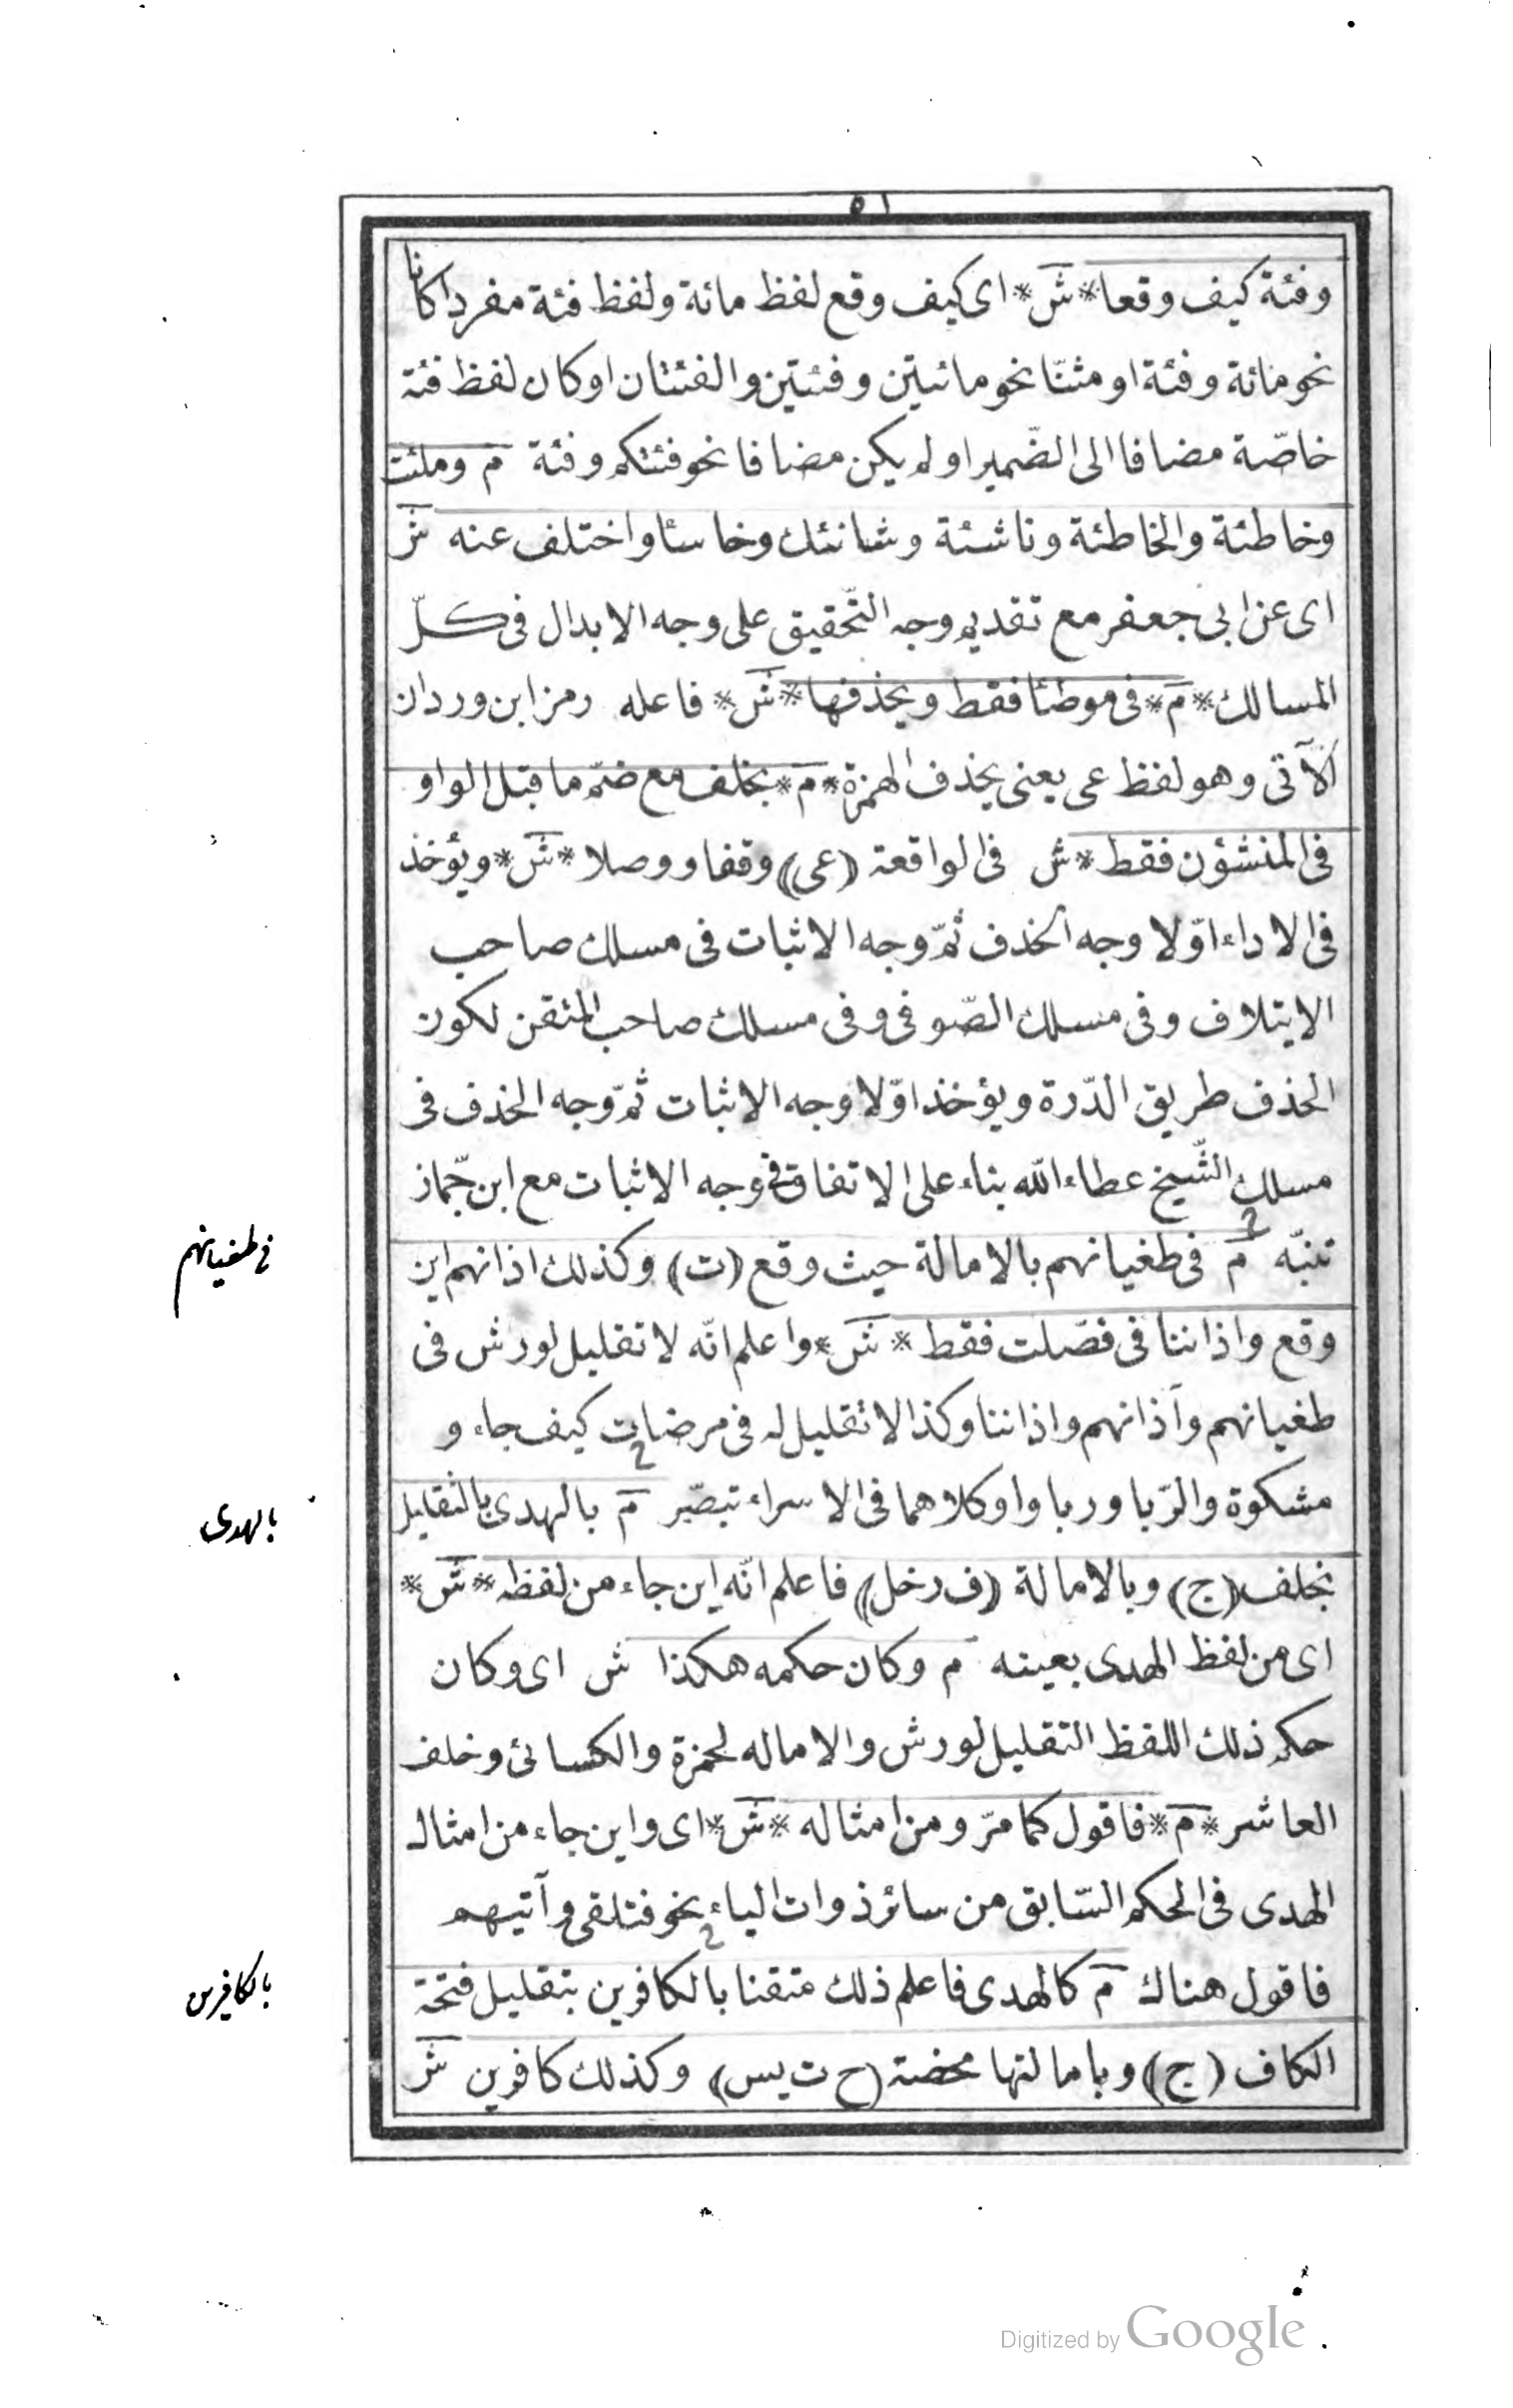 ٥١
وفئة كيف وقعا * ش * اى كيف وقع لفظ مائة ولفظ فئة مفردا كانا
نحو مائة وفئة او مثنّا نحو مائتين وفئتين والفئتان او كان لفظ فئة
خاصّة مضافا الى الضّمير او لم يكن مضافا نحو فئتكم وفئة م وملئت
وخاطئة والخاطئة وناشئة وشانئك وخاسئا واختلف عنه ش
اى عن ابى جعفر مع تقديم وجه التّحقيق على وجه الابدال فى كلّ
المسالك * م * فى موطئا فقط وبحذفها * ش * فاعله رمز ابن وردان
الآتى وهو لفظ عى يعنى بحذف الهمزة * م * بخلف مع ضمّ ما قبل الواو
فى المنشؤن فقط * ش فى الواقعة (عى) وقفا ووصلا * ش * ويؤخذ
فى الاداء اوّلا وجه الحذف ثمّ وجه الاثبات فى مسلك صاحب
الايتلاف وفى مسلك الصّوفى وفى مسلك صاحب المتقن لكون
الحذف طريق الدّرة ويؤخذ اوّلا وجه الاثبات ثمّ وجه الحذف فى
مسلك الشّيخ عطاء الله بناء على الاتفاق فى وجه الاثبات مع ابن جمّاز
تنبّه م فى طغيانهم بالامالة حيث وقع (ت) وكذلك اذانهم اين
وقع واذاننا فى فصّلت فقط * ش * واعلم انّه لا تقليل لورش فى
طغيانهم وآذانهم واذاننا وكذا لا تقليل له فى مرضات كيف جاء و
مشكوة والرّبا وربا واو كلاهما فى الاسراء تبصّر م بالهدى بالتقليل
بخلف (ج) وبالامالة (ف رخل) فاعلم انّه اين جاء من لفظه * ش *
اى من لفظ الهدى بعينه م وكان حكمه هكذا ش اى وكان
حكم ذلك اللفظ التقليل لورش والاماله لحمزة والكسائى وخلف
العاشر * م * فاقول كما مرّ ومن امثاله * ش * اى واين جاء من امثال
الهدى فى الحكم السّابق من سائر ذوات الياء نحو فتلقى وآتيهم
فاقول هناك م كالهدى فاعلم ذلك متقنا بالكافرين بتقليل فتحة
الكاف (ج) وبامالتها محضة (ح ت يس) وكذلك كافرين ش
فى طغيانهم
بالهدى
بالكافرين
Digitized by Google